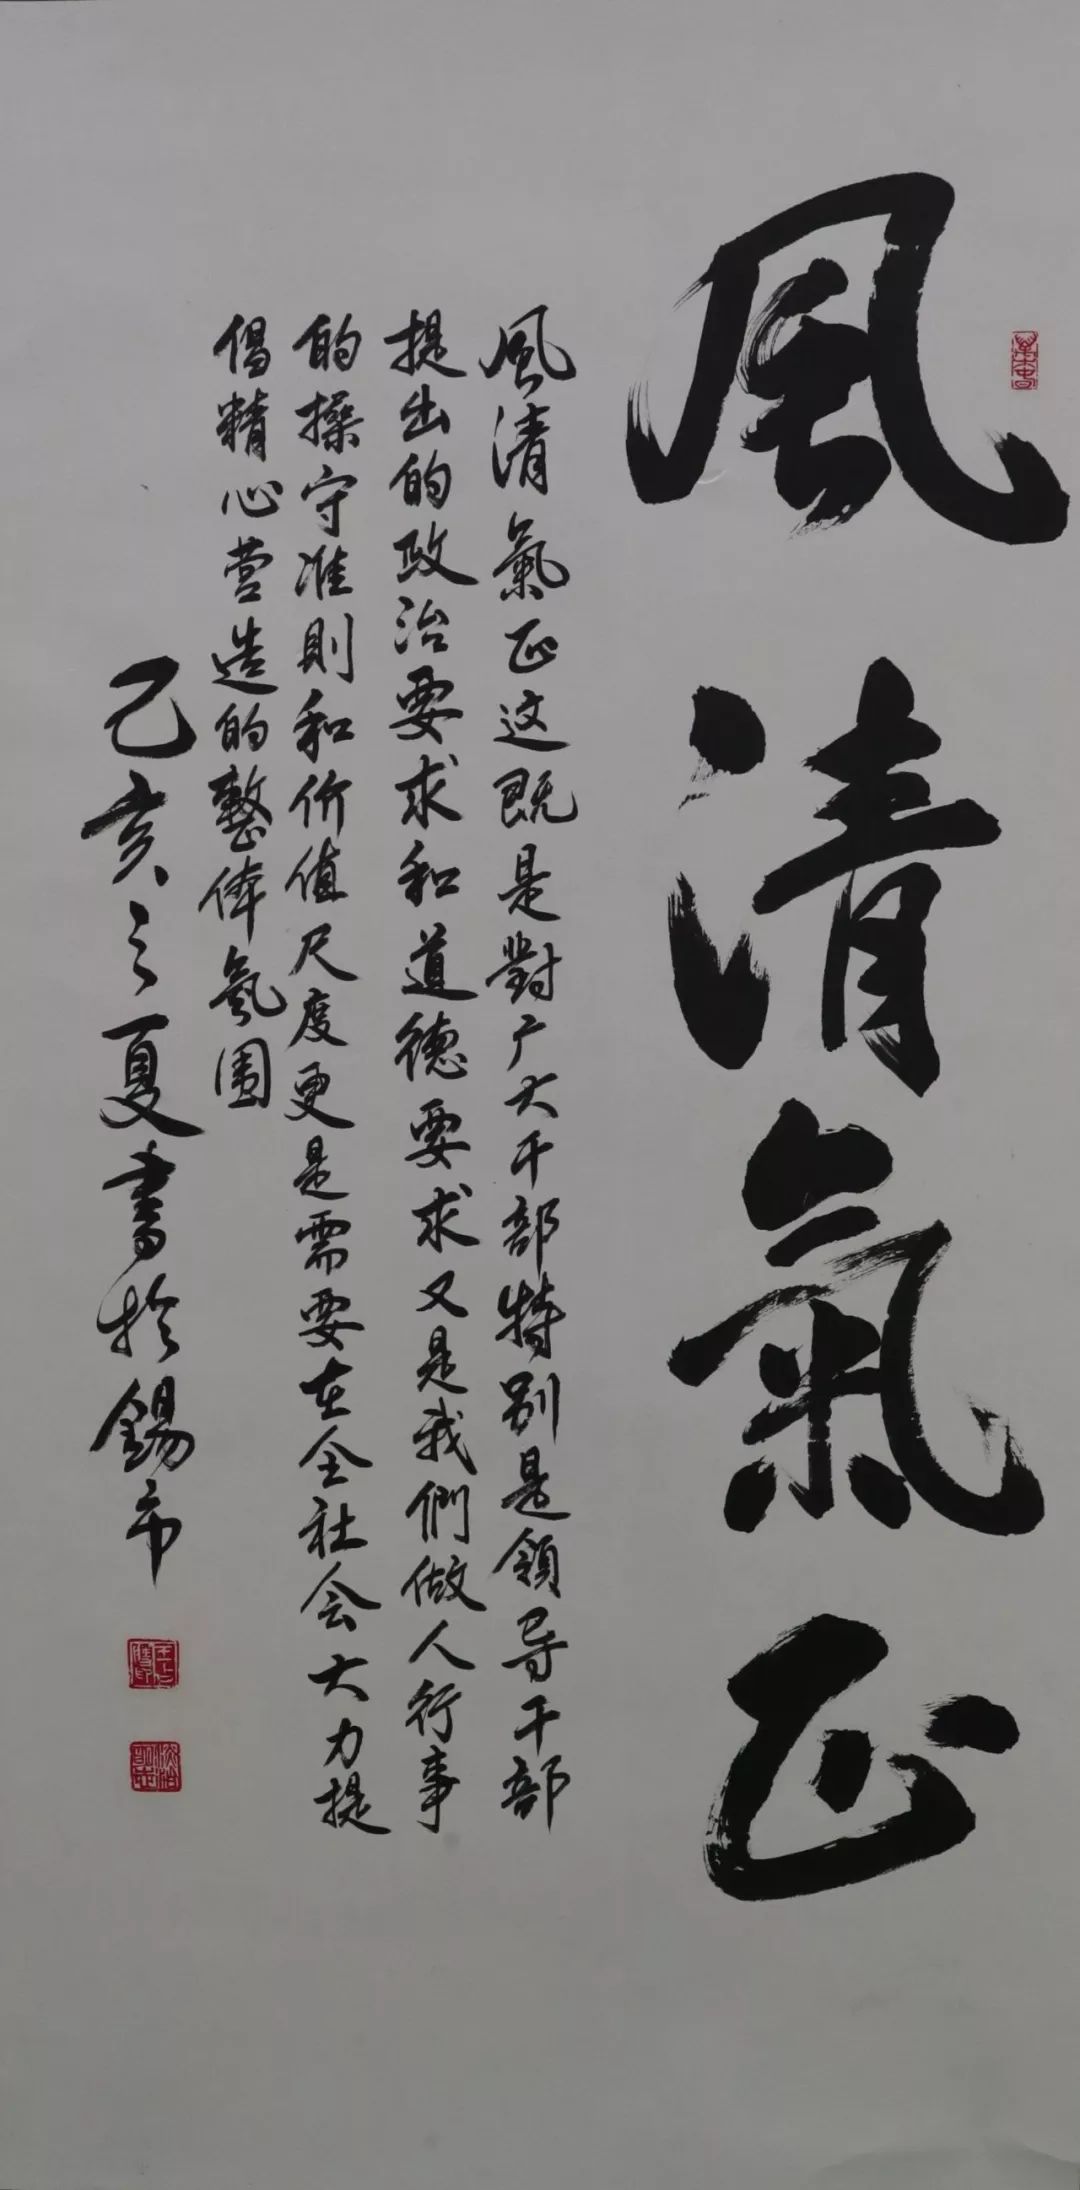 風清氣正
風清氣正这既是對广大干部特别是領导干部
提出的政治要求和道德要求又是我們做人行事
的操守准則和价值尺度更是需要在全社会大力提
倡精心营造的整体氛围
己亥之夏書於錫市